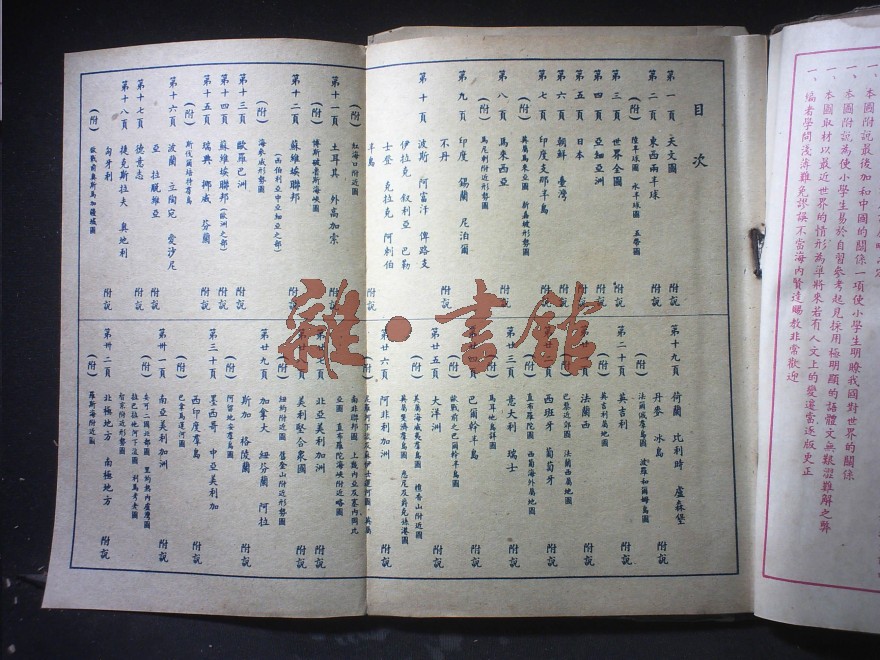 目次
第一頁 天文圖 附說
第二頁 東西兩半球 附說
(附) 陸半球圖 水半球圖 五帶圖
第三頁 世界全圖 附說
第四頁 亞細亞洲 附說
第五頁 日本 附說
第六頁 朝鮮 臺灣 附說
第七頁 印度支那半島 附說
(附) 英屬馬來亞圖 新嘉坡形勢圖
第八頁 馬來西亞 附說
(附) 馬尼剌附近形勢圖
第九頁 印度 錫蘭 尼泊爾
不丹 附說
第十頁 波斯 阿富汗 俾路支
伊拉克 叙利亞 巴勒
士登 克拉克 阿剌伯
半島 附說
(附) 紅海口附近圖
第十一頁 土耳其 外高加索 附說
(附) 博斯破魯斯海峽圖
第十二頁 蘇維埃聯邦 附說
(西伯利亞中亞細亞之部)
(附) 海參威形勢圖
第十三頁 歐羅巴洲 附說
第十四頁 蘇維埃聯邦(歐洲之部) 附說
第十五頁 瑞典 挪威 芬蘭 附說
(附) 斯伐爾培特羣島
第十六頁 波蘭 立陶宛 愛沙尼
亞 拉脫維亞 附說
第十七頁 德意志 附說
第十八頁 捷克斯拉夫 奥地利
匈牙利 附說
(附) 歐戰前奧斯馬加疆域圖
第十九頁 荷蘭 比利時 盧森堡
丹麥 冰島 附說
(附) 法爾羅羣島圖
第二十頁 英吉利 附說
(附) 英吉利屬地圖
第廿一頁 法蘭西 附說
(附) 巴黎近郊圖 法蘭西屬地圖
第廿二頁 西班牙 葡萄牙 附說
(附) 直布羅陀圖 西葡海外屬地圖
第廿三頁 意大利 瑞士 附說
(附) 馬耳他島詳圖
第廿四頁 巴爾幹半島 附說
(附) 歐戰前之巴爾幹半島圖
第廿五頁 大洋洲 附說
(附) 美屬海威夷羣島圖 檀香山附近圖
第廿六頁 阿非利加洲 附說
第廿七頁 北亞美利加洲 附說
第廿八頁 美利堅合衆國 附說
(附) 紐約附近圖 舊金山附近形勢圖
第廿九頁 加拿大 紐芬蘭 阿拉
斯加 格陵蘭 附說
(附) 阿留地安羣島圖
第三十頁 墨西哥 中亞美利加
西印度羣島 附說
(附) 巴拿馬運河圖
第卅一頁 南亞美利加洲 附說
(附) 委可二國北部圖 里約熱內盧灣圖
第卅二頁 北極地方 南極地方 附說
(附) 羅斯海附近圖
一、本圖附說最後加和中國的關係一項使小學生明瞭我國對世界的關係
一、本圖附說為使小學生易於自習參考起見採用極明顯的語體文無艱澀難解之弊
一、本圖取材以最近世界的情形為準將來若有人文上的變遷當逐版更正
一、編者學問淺薄難免謬誤不當海內賢達賜教非常歡迎
雜·書館